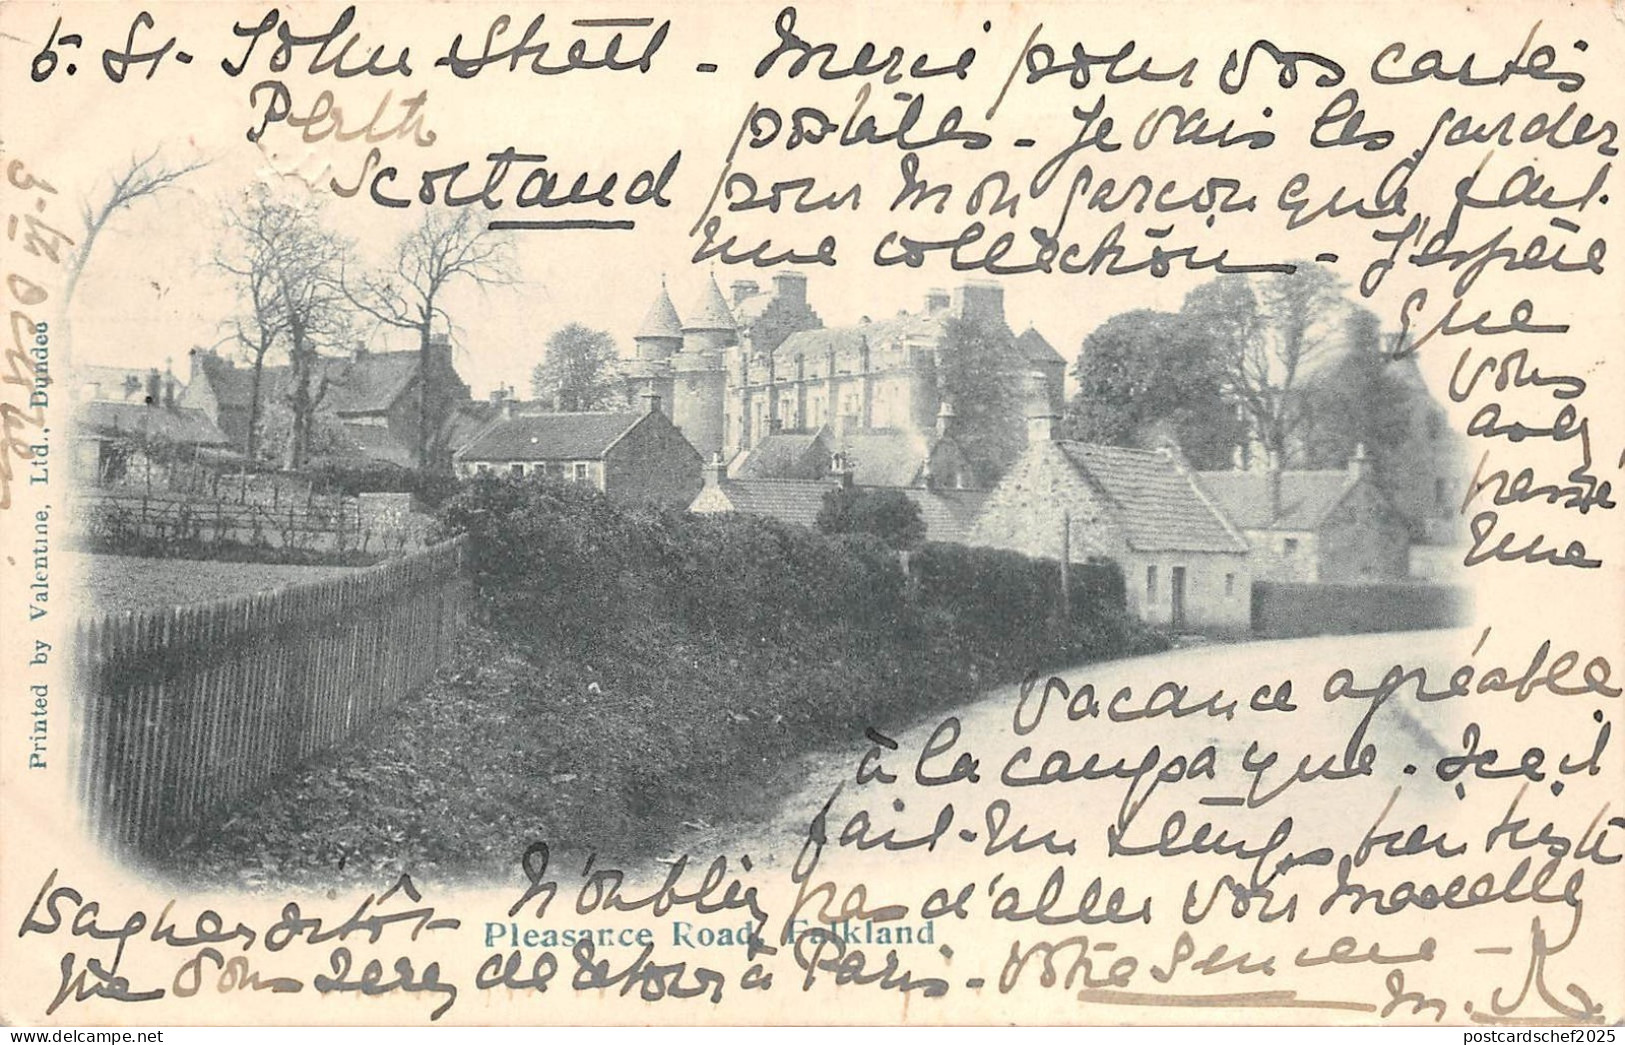 5. St. John Street - Merci pour vos cartes
Perth
postales - Je vais les garder
Scotland
pour mon garçon qui fait
une collection - J'espère
que
vous
avez
passé
une
vacance agréable
à la campagne. Ici il
fait un temps bien triste
N'oubliez pas d'aller voir Marcelle
aussitôt
que vous serez de retour à Paris - Votre
M. R.
Pleasance Road, Falkland
Printed by Valentine, Ltd., Dundee
postcardschef2025